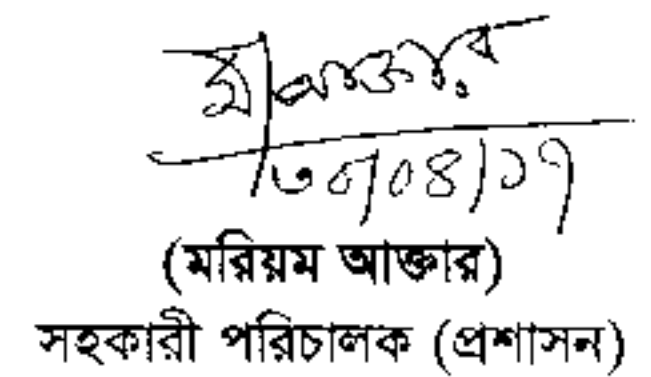 ৩০/০৪/১৭
(মরিয়ম আক্তার)
সহকারী পরিচালক (প্রশাসন)